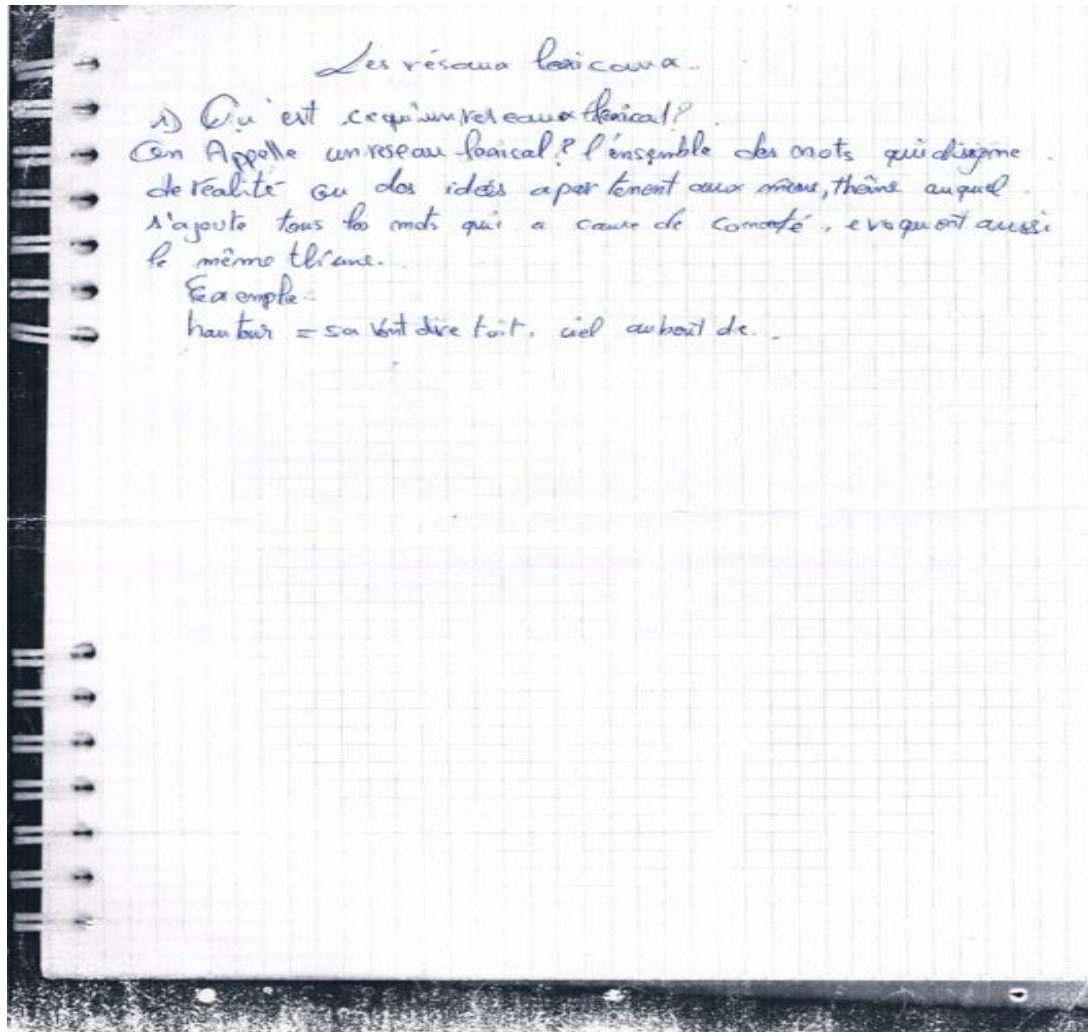 Les réseaux lexicaux.
1) Qu'est ce qu'un reseaux lexical?
On Appelle un reseau lexical? l'ensemble des mots qui
de réalité ou des idées apartenent aux même, thème auquel
s'ajoute tous les mots qui a cause de, evoquent aussi
le même thème.
Exemple:
hauteur = sa veut dire toit, ciel au bout de...